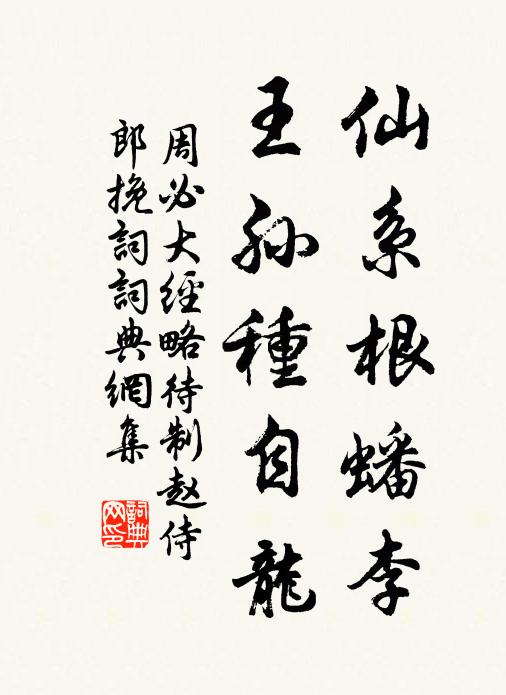 仙系根蟠李
王孙種自龍
周必大經略待制赵侍
郎挽詞詞典網集
詞典网印